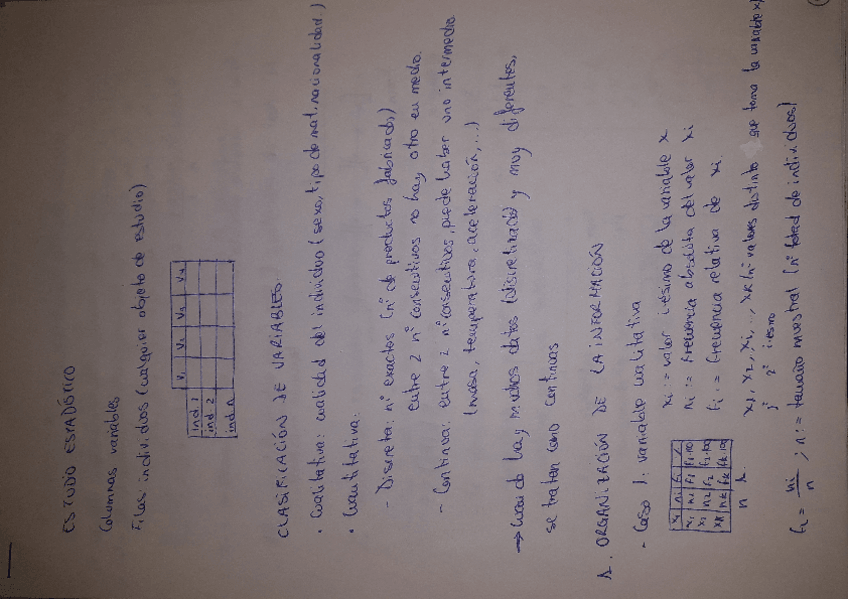 ESTUDO ESTADÍSTICO
Columnas variables
Filas individuos (cualquier objeto de estudio)
V1 V2 V3 V4
ind. 1
ind 2
ind. n
CLASIFICACIÓN DE VARIABLES.
• Cualitativa: cualidad del individuo (sexo, tipo de mat., nacionalidad...)
• Cuantitativa:
- Discreta: nº exactos (nº de productos fabricados)
entre 2 nº consecutivos no hay otro en medio.
- Continua: entre 2 nº consecutivos, puede haber uno intermedio
(masa, temperatura, aceleración,...)
→ Cuando hay muchos datos (discretización) y muy diferentes,
se tratan como continuas
1. ORGANIZACIÓN DE LA INFORMACIÓN
- Caso 1: variable cualitativa
xi ni fi %
x1 n1 f1 f1·100
x2 n2 f2 f2·100
xk nk fk fk·100
n 1.
xi := valor iésimo de la variable x
ni := frecuencia absoluta del valor xi
fi := frecuencia relativa de xi.
x1, x2, xi, ..., xk (nº valores distinto que toma la variable x)
1º 2º iésimo
fi = ni/n ; n := tamaño muestral (nº total de individuos)